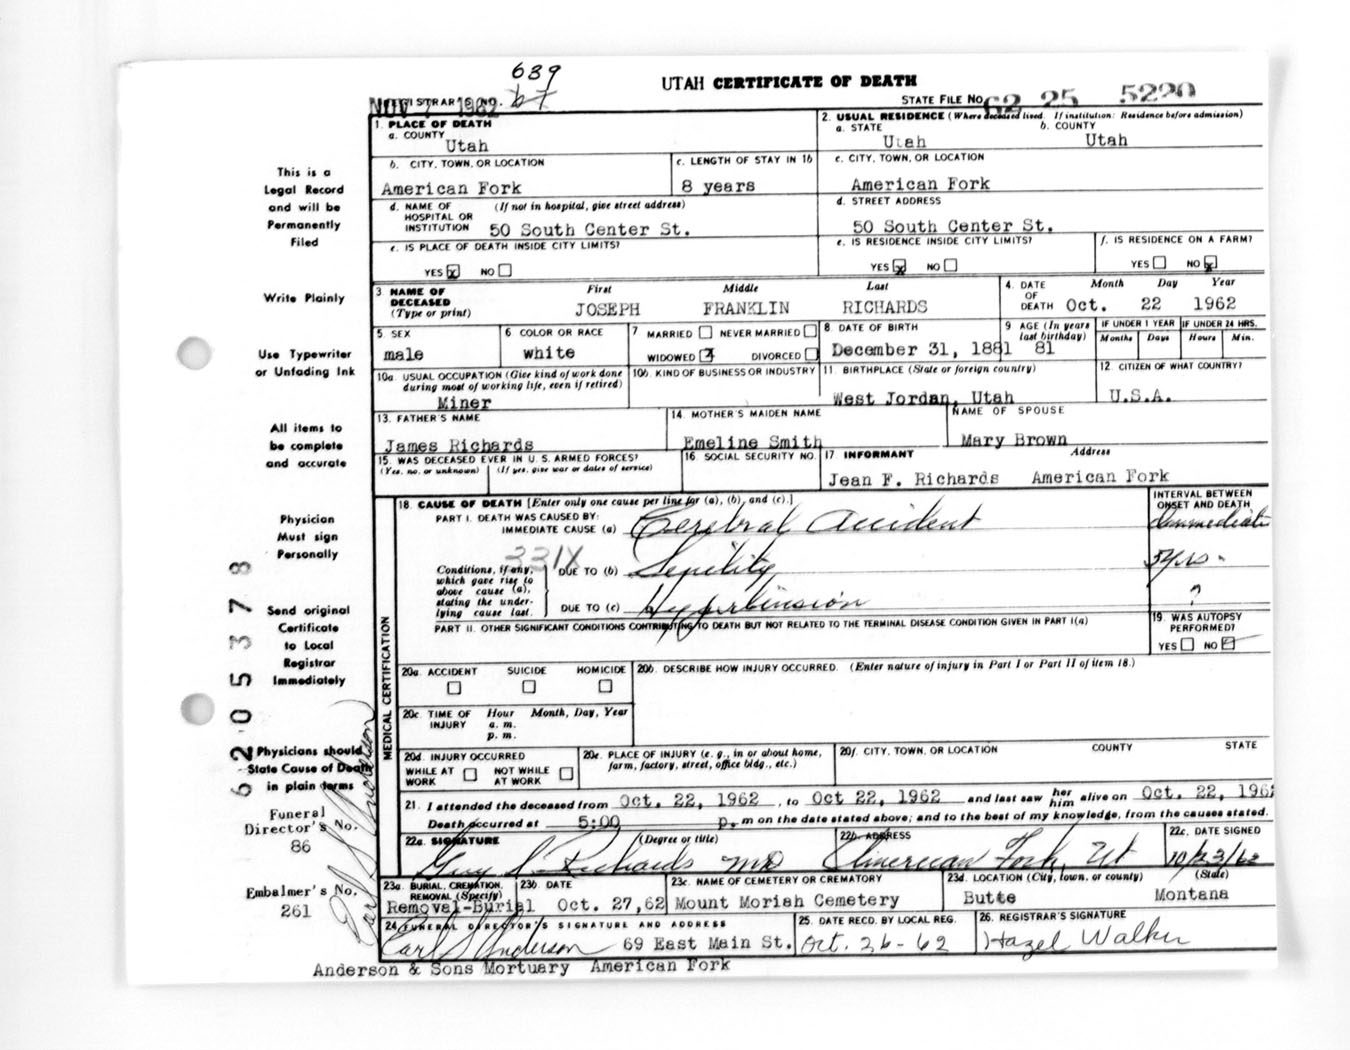 639
67
UTAH CERTIFICATE OF DEATH
NOV 1962 REGISTRAR'S NO.
STATE FILE NO. 62 25 5220
1. PLACE OF DEATH
a. COUNTY
Utah
2. USUAL RESIDENCE (Where deceased lived. If institution: Residence before admission)
a. STATE b. COUNTY
Utah Utah
b. CITY, TOWN, OR LOCATION c. LENGTH OF STAY IN 1b
American Fork 8 years
c. CITY, TOWN, OR LOCATION
American Fork
d. NAME OF HOSPITAL OR INSTITUTION (If not in hospital, give street address)
50 South Center St.
d. STREET ADDRESS
50 South Center St.
e. IS PLACE OF DEATH INSIDE CITY LIMITS?
YES x NO
e. IS RESIDENCE INSIDE CITY LIMITS?
YES x NO
f. IS RESIDENCE ON A FARM?
YES NO x
3 NAME OF DECEASED (Type or print)
First Middle Last
JOSEPH FRANKLIN RICHARDS
4. DATE OF DEATH Month Day Year
Oct. 22 1962
5. SEX
male
6 COLOR OR RACE
white
7 MARRIED NEVER MARRIED
WIDOWED DIVORCED
8. DATE OF BIRTH
December 31, 1881
9 AGE (In years last birthday)
81
IF UNDER 1 YEAR IF UNDER 24 HRS.
Months Days Hours Min.
10a. USUAL OCCUPATION (Give kind of work done during most of working life, even if retired)
Miner
10b. KIND OF BUSINESS OR INDUSTRY
11. BIRTHPLACE (State or foreign country)
West Jordan, Utah
12. CITIZEN OF WHAT COUNTRY?
U.S.A.
13. FATHER'S NAME
James Richards
14. MOTHER'S MAIDEN NAME
Emeline Smith
NAME OF SPOUSE
Mary Brown
15. WAS DECEASED EVER IN U.S. ARMED FORCES?
(Yes, no, or unknown) (If yes, give war or dates of service)
16 SOCIAL SECURITY NO.
17 INFORMANT Address
Jean F. Richards American Fork
18. CAUSE OF DEATH [Enter only one cause per line for (a), (b), and (c).]
INTERVAL BETWEEN ONSET AND DEATH
PART I. DEATH WAS CAUSED BY:
IMMEDIATE CAUSE (a) Cerebral Accident Immediate
331X
Conditions, if any, which gave rise to above cause (a), stating the underlying cause last.
DUE TO (b) Senility 5 yrs.
DUE TO (c) Hypertension ?
PART II. OTHER SIGNIFICANT CONDITIONS CONTRIBUTING TO DEATH BUT NOT RELATED TO THE TERMINAL DISEASE CONDITION GIVEN IN PART I(a)
19. WAS AUTOPSY PERFORMED?
YES NO
MEDICAL CERTIFICATION
20a. ACCIDENT SUICIDE HOMICIDE
20b. DESCRIBE HOW INJURY OCCURRED. (Enter nature of injury in Part I or Part II of item 18.)
20c. TIME OF INJURY Hour Month, Day, Year
a. m.
p. m.
20d. INJURY OCCURRED
WHILE AT WORK NOT WHILE AT WORK
20e. PLACE OF INJURY (e. g., in or about home, farm, factory, street, office bldg., etc.)
20f. CITY, TOWN, OR LOCATION COUNTY STATE
21. I attended the deceased from Oct. 22, 1962, to Oct 22, 1962 and last saw her him alive on Oct. 22, 196
Death occurred at 5:00 p. m on the date stated above; and to the best of my knowledge, from the causes stated.
22a. SIGNATURE (Degree or title)
Guy S. Richards MD
22b. ADDRESS
American Fork, Ut
22c. DATE SIGNED
10/23/62
23a. BURIAL, CREMATION, REMOVAL (Specify)
Removal-Burial
23b. DATE
Oct. 27,62
23c. NAME OF CEMETERY OR CREMATORY
Mount Moriah Cemetery
23d. LOCATION (City, town, or county) (State)
Butte Montana
24 FUNERAL DIRECTOR'S SIGNATURE AND ADDRESS
Earl S Anderson 69 East Main St.
25. DATE RECD. BY LOCAL REG.
Oct. 26-62
26. REGISTRAR'S SIGNATURE
Hazel Walker
Anderson & Sons Mortuary American Fork
This is a
Legal Record
and will be
Permanently
Filed
Write Plainly
Use Typewriter
or Unfading Ink
All items to
be complete
and accurate
Physician
Must sign
Personally
Send original
Certificate
to Local
Registrar
Immediately
Physicians should
State Cause of Death
in plain terms
Funeral
Director's No.
86
Embalmer's No.
261
Earl S Anderson
62053778